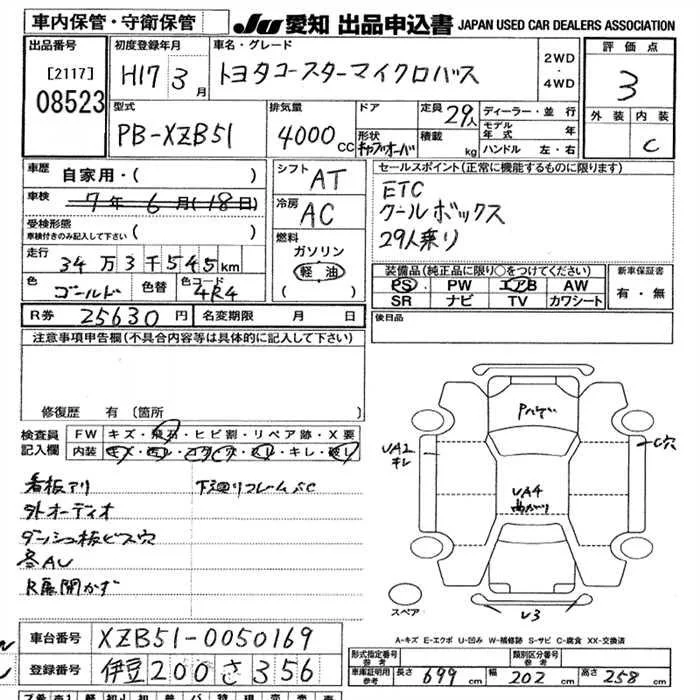 車内保管・守衛保管
JU 愛知 出品申込書 JAPAN USED CAR DEALERS ASSOCIATION
出品番号 [2117] 08523
初度登録年月 H17年 3月
車名・グレード トヨタコースターマイクロバス
2WD・4WD
評価点 3
外装 内装 C
型式 PB-XZB51
排気量 4000cc
ドア
形状 キャブオーバ
定員 29人
積載 kg
ディーラー・並行
モデル年式 年
ハンドル 左・右
車歴 自家用・( )
車検 7年 6月(18日)
受検形態 車検付きのみ記入して下さい ( )
走行 34万3千545km
色 ゴールド 色替 色コード 4R4
シフト AT
冷房 AC
燃料 ガソリン 軽油 ( )
セールスポイント(正常に機能するものに限ります)
ETC
クールボックス
29人乗り
装備品(純正品に限り○をつけてください)
PS PW エアB AW
SR ナビ TV カワシート
新車保証書 有・無
R券 25630円 名変期限 月 日
後日品
注意事項申告欄(不具合内容等は具体的に記入して下さい)
修復歴 有 (箇所
検査員記入欄
FW キズ・飛石・ヒビ割・リペア跡・X要
内装 キズ・汚レ・コゲ・穴・スレ・キレ・破レ
看板アリ 下廻りフレームSC
外オーディオ
ダッシュ板ビス穴
各AU
R扉開かず
UA1 キレ
C穴
UA4 曲がり
U3
スペア
A-キズ E-エクボ U-凹み W-補修跡 S-サビ C-腐食 XX-交換済
車台番号 XZB51-0050169
登録番号 伊豆200さ356
形式指定番号 参考
類別区分番号 参考
車庫証明用参考 長さ 699cm 幅 202cm 高さ 258cm